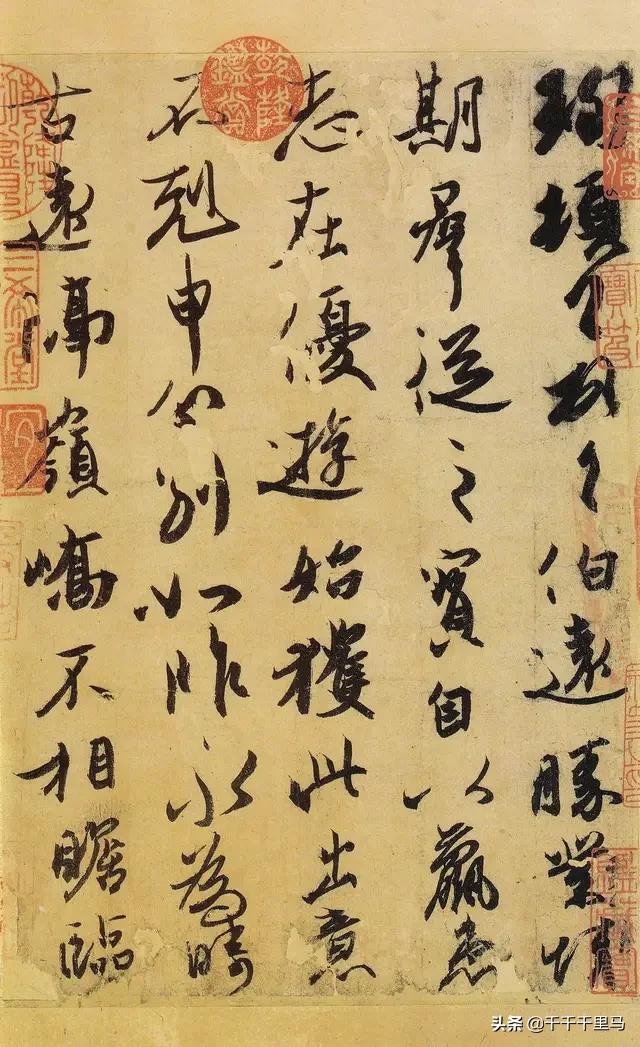 珣頓首頓首伯遠勝業情
期羣從之寶自以羸患
志在優遊始獲此出意
不剋申分別如昨永為疇
古遠隔嶺嶠不相瞻臨
乾隆鑑賞
三希堂
头条 @千千千里马